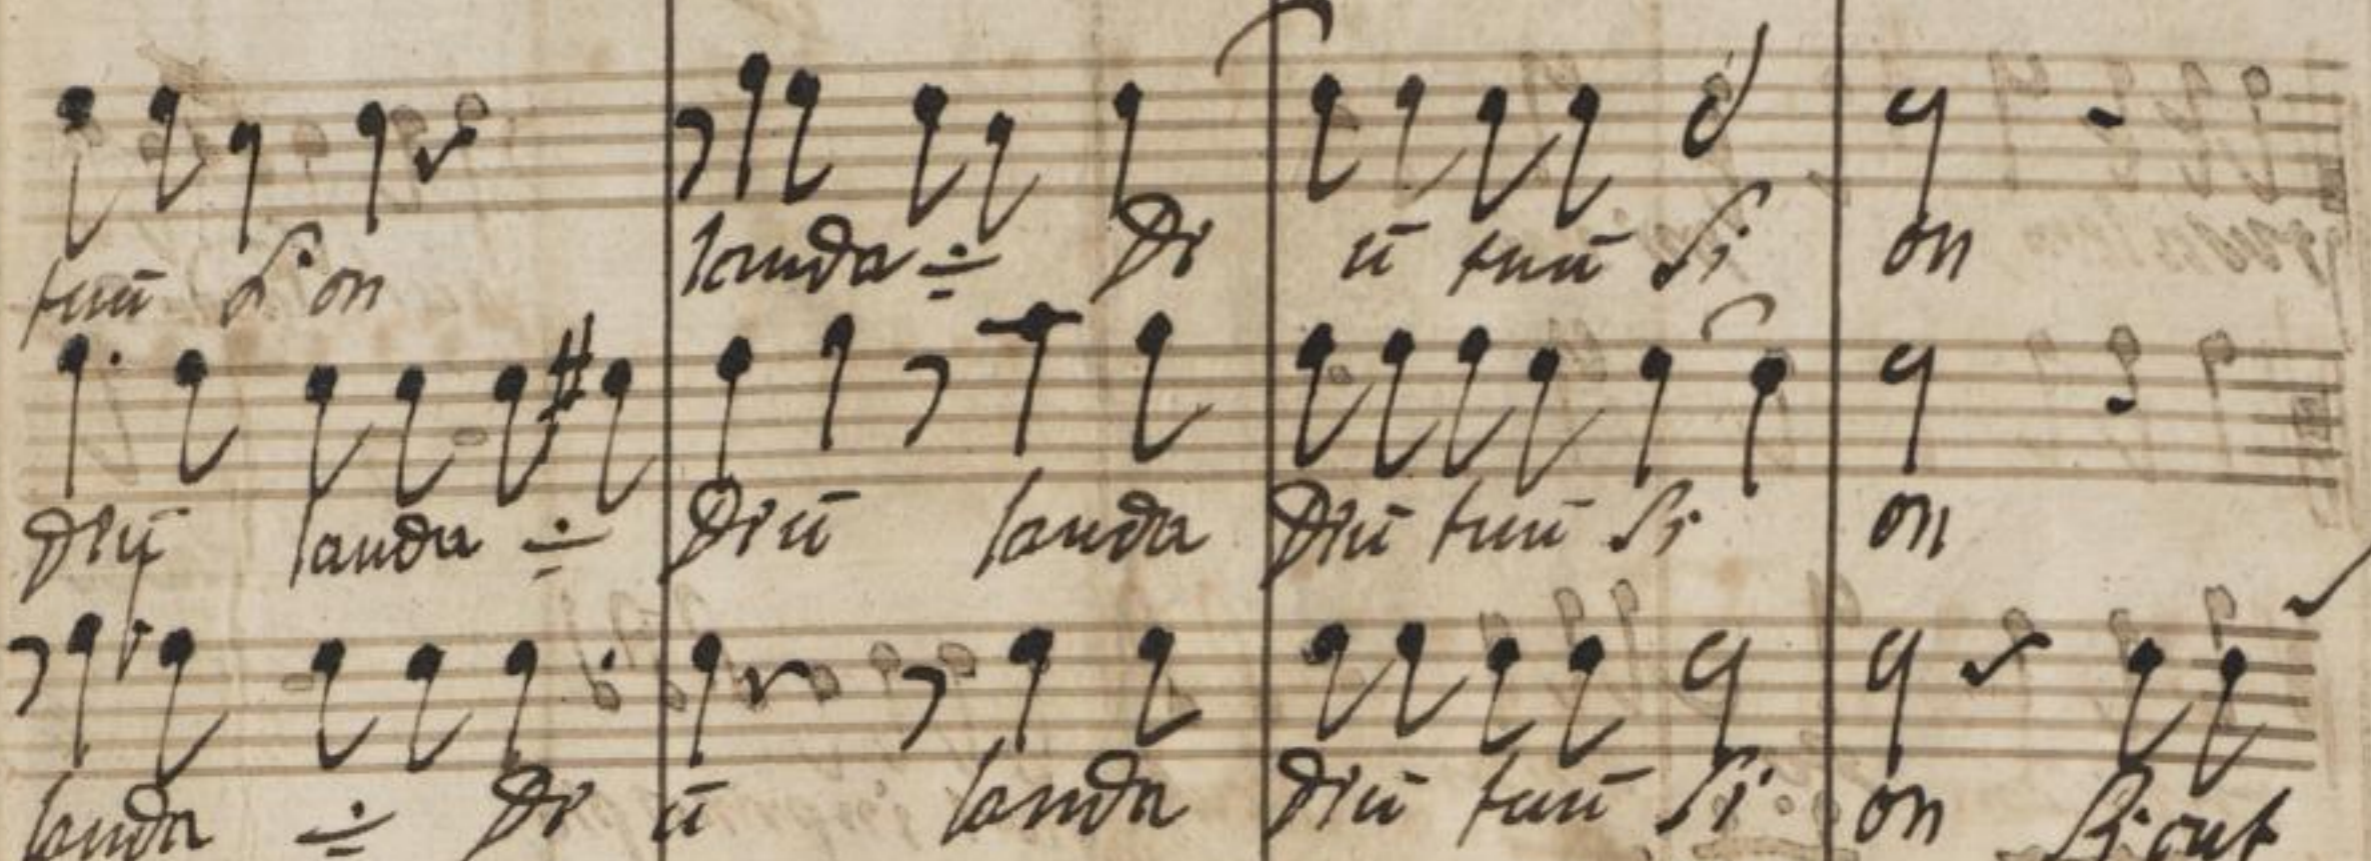 tuū Sion lauda ÷ De ū tuū Si on
Deū lauda ÷ Deū lauda Deū tuū Si on
lauda ÷ De ū lauda Deū tuū Si on